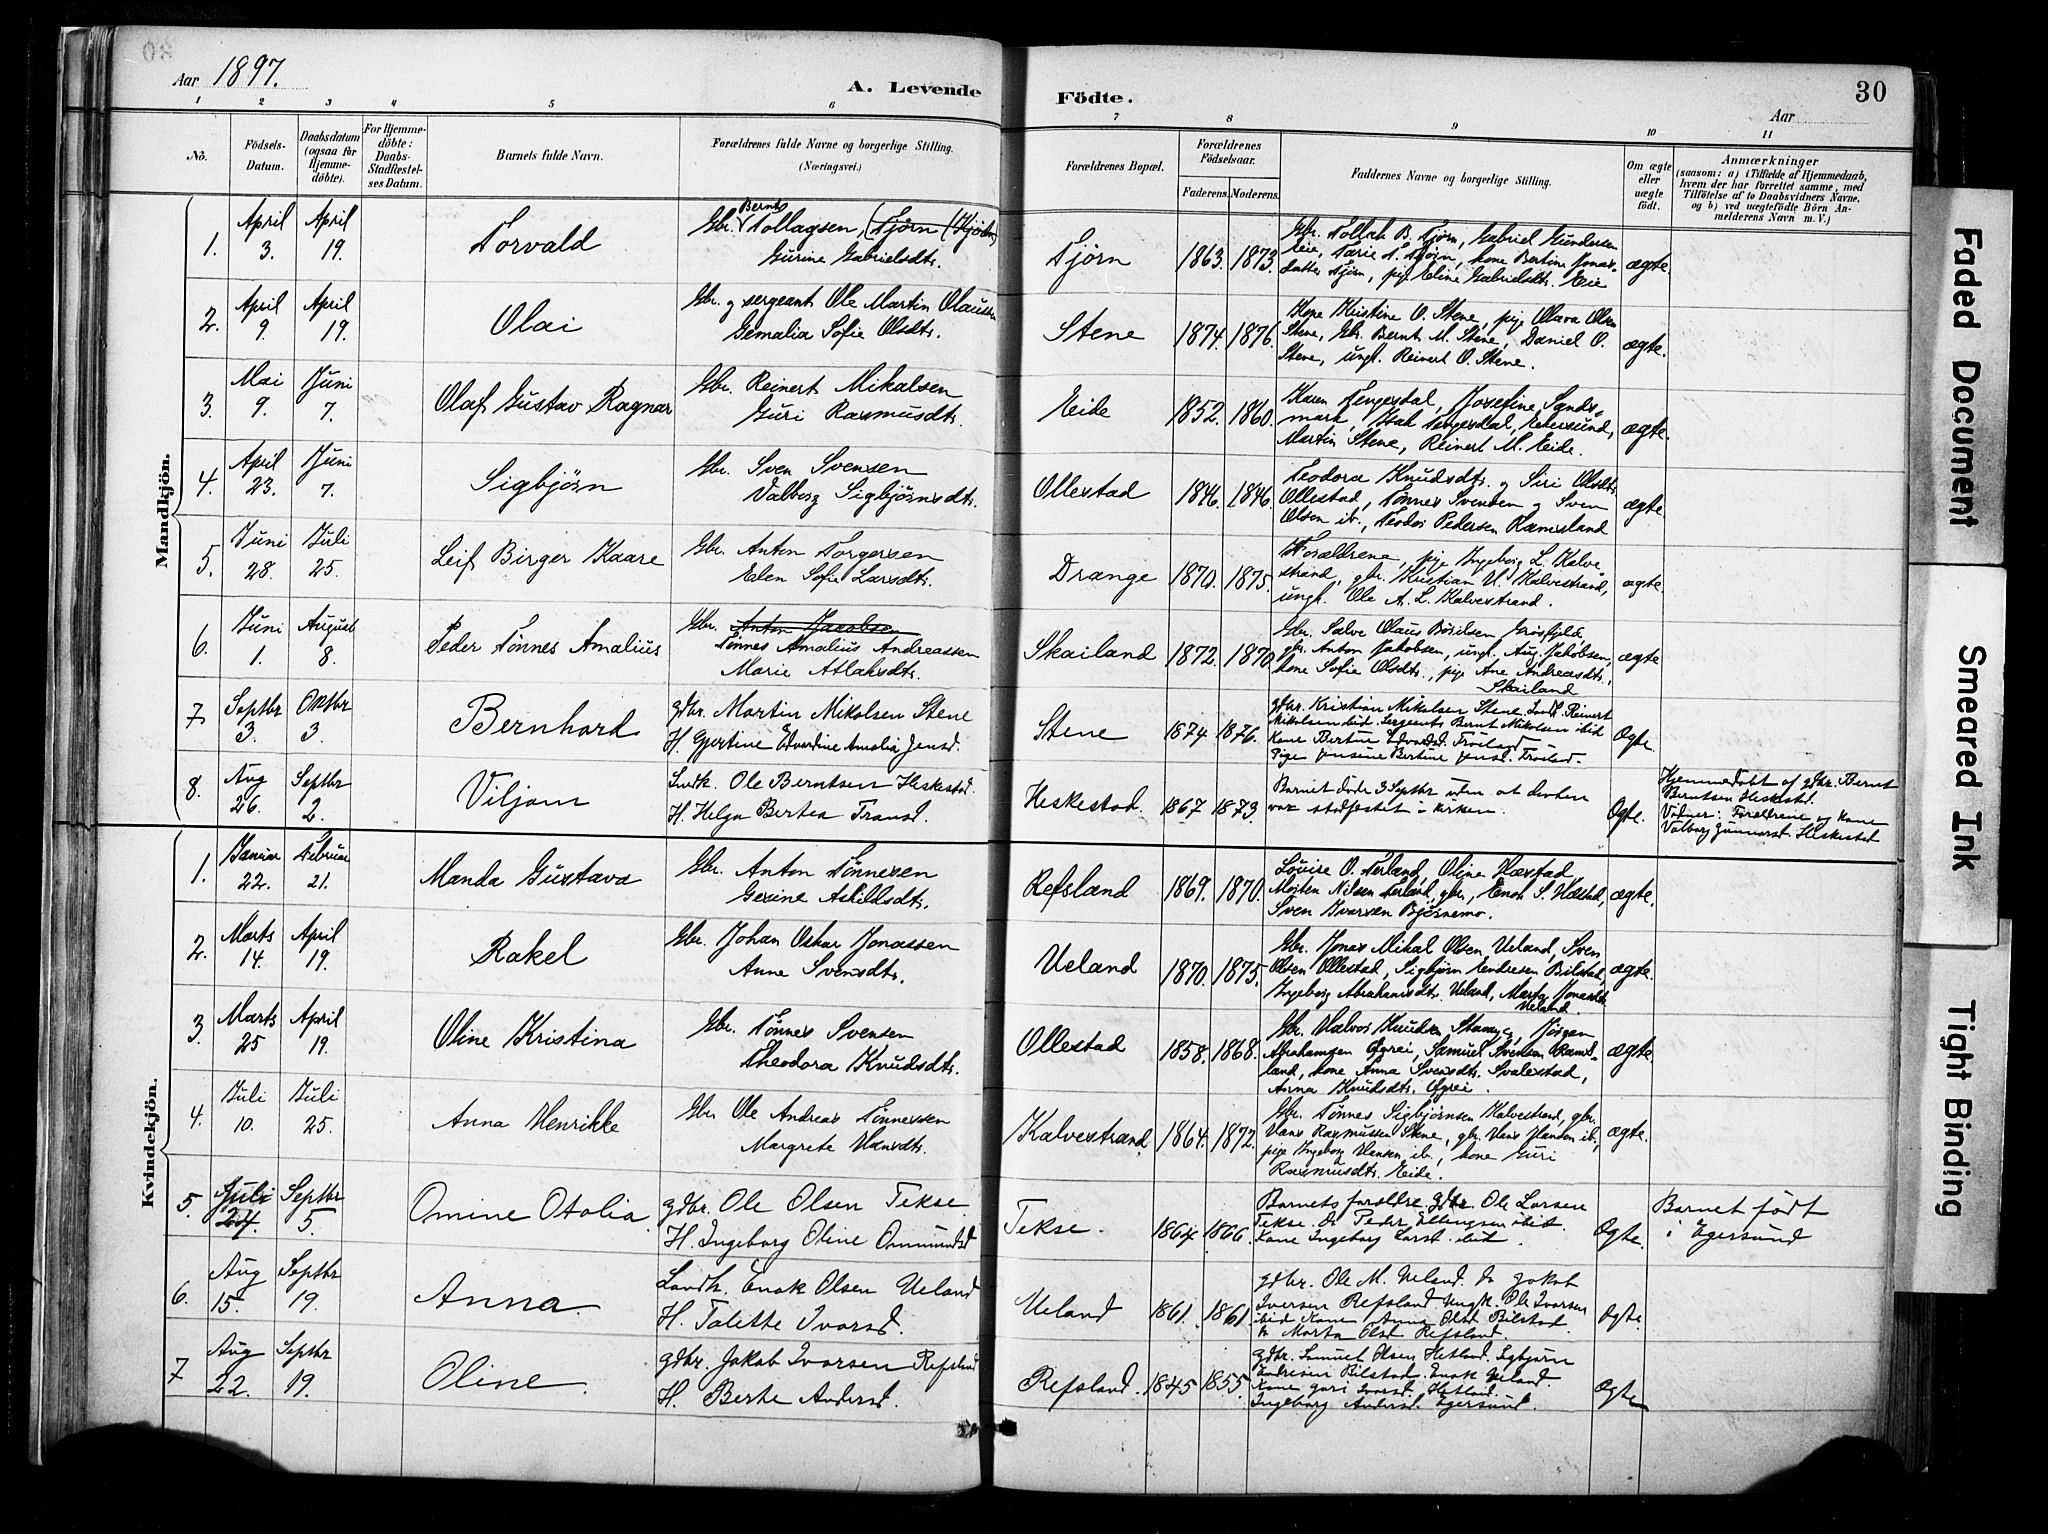 Aar 1897.
A. Levende Födte.
30
Aar
1 2 3 4 5 6 7 8 9 10 11
No.
Födsels-Datum.
Daabsdatum (ogsaa for Hjemmedöbte).
For Hjemmedöbte: Daabs-Stadfæstelses Datum.
Barnets fulde Navn.
Forældrenes fulde Navne og borgerlige Stilling. (Næringsvei.)
Forældrenes Bopæl.
Forældrenes Födselsaar.
Faderens. Moderens.
Faddernes Navne og borgerlige Stilling.
Om ægte eller uægte födt.
Anmærkninger
(saasom: a) i Tilfælde af Hjemmedaab, hvem der har forrettet samme, med Tilföielse af to Daabsvidners Navne, og b) ved uægtefödte Börn Anmelderens Navn m. V.)
Mandkjön.
1. April 3. April 19. Torvald
Gbr. Bernt Tollagsen, Tjørn
Gurine Gabrielsdtr.
Tjørn 1863. 1873.
Gbr. Tollak B. Tjørn, Gabriel Gundersen
Eie, Tarie T. Tjørn, kone Bertine Jonas-
datter Tjørn, pige Eline Gabrielsdtr. Eie
ægte.
2. April 9. April 19. Olai
Gbr. og sergeant Ole Martin Olaussen
Gemalia Sofie Olsdtr.
Stene 1874. 1876.
Kristine O. Stene, pige Olava Olsen
Stene, Gbr. Bernt M. Stene, Daniel O.
Stene, ungk. Reinert O. Stene.
ægte.
3. Mai 9. Juni 7. Olaf Gustav Ragnar
Gbr. Reinert Mikalsen
Guri Rasmusdtr.
Eide 1852. 1860.
Karen Tengesdal, Josefine Sands-
mark, Isak Tengesdal, Ekersund,
Martin Stene, Reinert M. Eide.
ægte.
4. April 23. Juni 7. Sigbjörn
Gbr. Sven Svensen
Valborg Sigbjörnsdtr.
Ollestad 1846. 1846.
Teodora Knudsdtr. og Siri Olsdtr.
Ollestad, Tönnes Svensen og Sven
Olsen ib., Teodor Pedersen Ramsland
ægte.
5. Juni 28. Juli 25. Leif Birger Kaare
Gbr. Anton Torgersen
Elen Sofie Larsdtr.
Drange 1870. 1875.
Forældrene, pige Ingeborg L. Kalve-
strand, gbr. Kristian H. Kalvestrand,
ungk. Ole A. L. Kalvestrand.
ægte.
6. Juni 1. August 8. Peder Tönnes Amalius
Gbr. Anton Jacobsen
Tönnes Amalius Andreassen
Marie Atlaksdtr.
Skailand 1872. 1870.
Gbr. Salve Olaus Bösilsen
gbr. Anton Jakobsen, ungk. Aug. Jakobsen,
kone Sofie Olsdtr., pige Ane Andreasdtr.,
Skailand
ægte
7. Septbr 3. Oktbr 3. Bernhard
gdbr. Martin Mikalsen Stene
H. Gjertine Edvardine Amalia Jensd.
Stene 1874 1876.
gdbr. Kristian Mikalsen Stene. Reinert
Mikalsen ibid. Sergeant Bernt Mikalsen ibid
Kone Bertine Edvardsd. Tröiland.
Pige Jensine Bertine Jensd. Fröiland.
Ægte.
8. Aug 26. Septbr 2. Viljam
Indk. Ole Berntsen Heskestad.
H. Helga Bertea Transd.
Heskestad. 1867 1873.
Barnet döde 3 Septbr uden at daaben
var stadfæstet i kirken.
Ægte.
Hjemmedöbt af gdbr. Bernt
Berntsen Heskestad.
Vidner: Forældrene og Kone
Valborg Gunnarsd. Heskestad
Kvindekjön.
1. Januar 22. Februar 21. Manda Gustava
Gbr. Anton Tönnesen
Gesine Askildsdtr.
Refsland 1869. 1870.
Louise O. Terland, Oline Hæstad,
Morten Nilsen Terland, gbr., Enok S. Hæstad,
Sven Ivarsen Bjørnemo.
ægte.
2. Marts 14. April 19. Rakel
Gbr. Johan Oskar Jonassen
Anne Svensdtr.
Ueland 1870. 1875.
Gbr. Jonas Mikal Olsen Ueland, Sven
Olsen Ollestad, Sigbjörn Endresen Bilstad,
Ingeborg Abrahamsdtr. Ueland, Marta Jonasdtr.
Ueland.
ægte.
3. Marts 25 April 19. Oline Kristina
Gbr. Tönnes Svensen
Theodora Knudsdtr.
Ollestad 1858. 1868.
Gbr. Halvor Knudsen Jörgen
Abrahamsen Øgrei, Samuel Svensen Rams-
land, kone Anna Svensdtr. Svalestad,
Anna Knudsdtr. Øgrei.
ægte
4. Juli 10. Juli 25. Anna Henrikke
Gbr Ole Andreas Tönnessen
Margrete Hansdtr.
Kalvestrand 1864. 1872.
Gbr. Tönnes Sigbjörnsen Kalvestrand, gbr.
Hans Rasmussen Stene, gbr. Hans Hansen ib.,
pige Ingeborg Hansen ib., kone Guri
Rasmusdtr. Eide.
ægte.
5. Juli 24. Septbr 5. Omine Otolia.
gdbr. Ole Olsen Tekse.
H. Ingeborg Oline Ommundsd
Tekse. 1864 1866.
Barnets forældre. gdbr. Ole Larsen
Tekse. do Peder Ellingsen ibid.
Kone Ingeborg Larsd. ibid.
Ægte.
Barnet födt
i Egersund
6. Aug 15. Septbr 19. Anna.
Landh. Enok Olsen Ueland
H. Talette Ivarsd.
Ueland 1861. 1861.
gdbr. Ole M. Ueland. do Jakob
Iversen Refsland Ungk. Ole Ivarsen
ibid Kone Anna Olsd Bilstad
do Marta Olsd Refsland.
Ægte.
7 Aug 22. Septbr 19. Oline.
gdbr. Jakob Ivarsen Refsland
H. Berte Andersd.
Refsland. 1845 1855.
gdbr. Samuel Olsen Hetland. Sigbjörn
Endresen Bilstad. Enok Ueland.
Kone Guri Ivarsd. Hetland.
Ingeborg Andersd. Egersund.
Ægte
Faded Document
Smeared Ink
Tight Binding